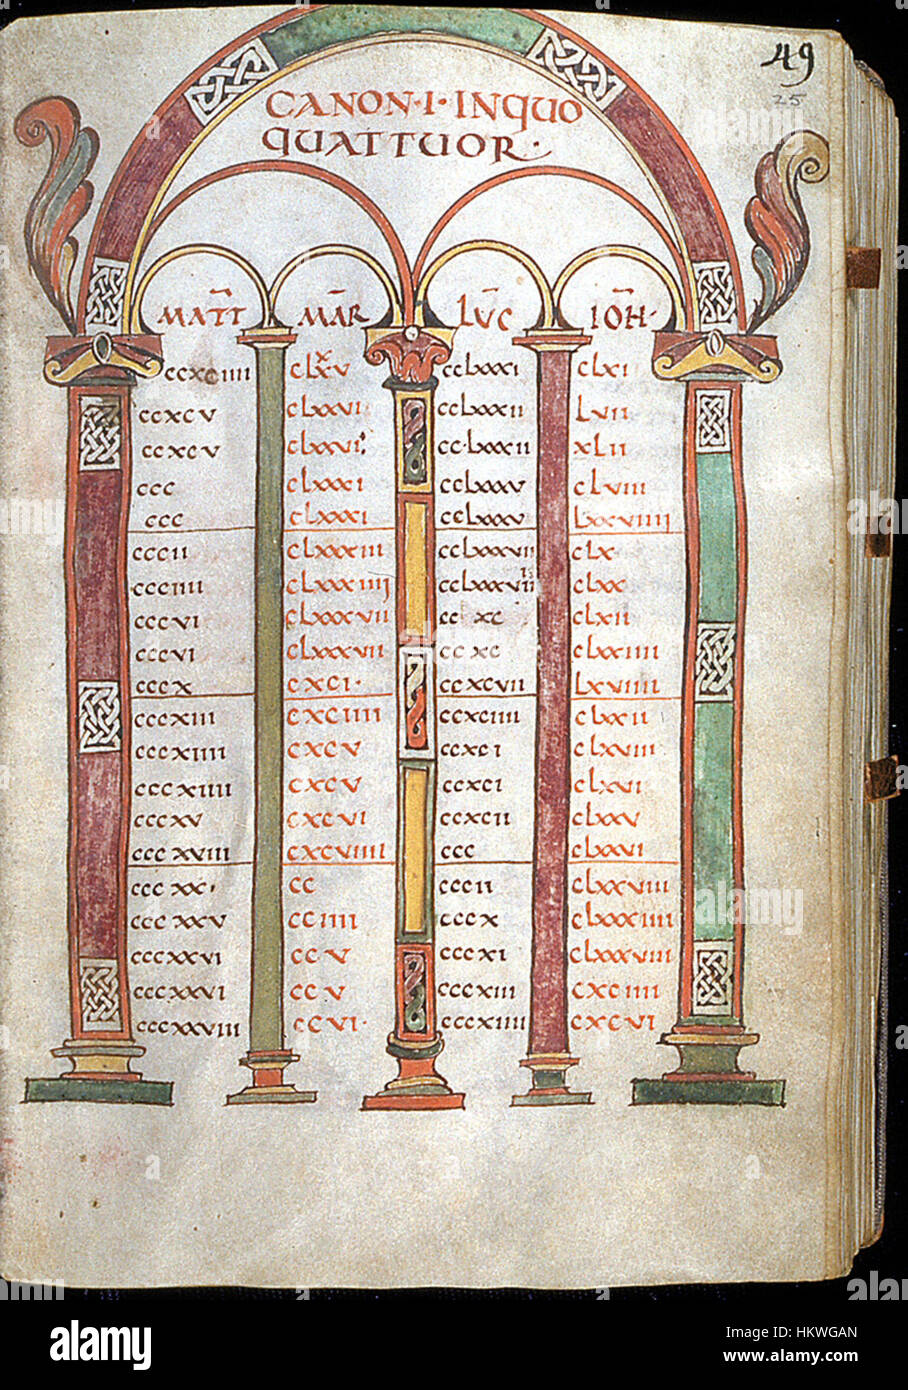 49
25
CANON·I·INQUO
QUATTUOR·
MATT MAR LUC IOH·
ccxciiii clxv cclxxxi clxi
ccxcv clxxvi cclxxxii lvii
ccxcv clxxvi cclxxxii xlii
ccc clxxxi cclxxxv clviii
ccc clxxxi cclxxxv lxxviiii
cccii clxxxiii cclxxxvii clx
ccciiii clxxxiiii cclxxxviiii clxx
cccvi clxxxvii ccxc clxii
cccvi clxxxvii ccxc clxxiiii
cccx cxci· ccxcvii lxviiii
cccxiii cxciiii ccxciiii clxxii
cccxiiii cxcv ccxci clxviii
cccxiiii cxcv ccxci clxvi
cccxv cxcvi ccxcii clxxv
cccxviii cxcviiii ccc clxxvi
cccxx· cc cccii clxxviii
cccxxv cciiii cccx clxxxiiii
cccxxvi ccv cccxi clxxxviii
cccxxvi ccv cccxiii cxciiii
cccxxviii ccvi· cccxiiii cxcvi
alamy stock photo
HKWGAN
www.alamy.com